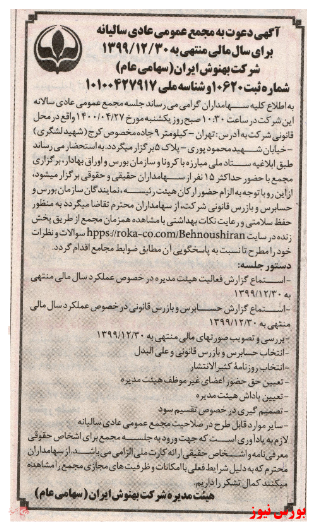 آگهی دعوت به مجمع عمومی عادی سالیانه
برای سال مالی منتهی به ۱۳۹۹/۱۲/۳۰
شرکت بهنوش ایران (سهامی عام)
شماره ثبت ۱۰۶۲۰ و شناسه ملی ۱۰۱۰۰۴۲۷۹۱۷
به اطلاع کلیه سهامداران گرامی می رساند جلسه مجمع عمومی عادی سالانه
این شرکت در ساعت ۱۰:۳۰ صبح روز یکشنبه مورخ ۱۴۰۰/۰۴/۲۷ واقع در محل
قانونی شرکت به آدرس: تهران – کیلومتر ۹ جاده مخصوص کرج (شهید لشگری)
– خیابان شهید محمود پوری – پلاک ۵ برگزار میگردد. به استحضار می رساند
طبق ابلاغیه ستاد ملی مبارزه با کرونا و سازمان بورس و اوراق بهادار، برگزاری
مجمع با حضور حداکثر ۱۵ نفر از سهامداران حقیقی و حقوقی برگزار میشود.
از این رو با توجه به الزام حضور ارکان هیئت رئیسه، نمایندگان سازمان بورس و
حسابرس و بازرس قانونی شرکت، از سهامداران محترم تقاضا میگردد به منظور
حفظ سلامتی و رعایت نکات بهداشتی با مشاهده همزمان مجمع از طریق پخش
زنده در سایت hpps://roka-co.com/Behnoushiran سوالات و نظرات
خود را مطرح تا نسبت به پاسخگویی آن مطابق ضوابط مجامع اقدام گردد.
دستور جلسه:
– استماع گزارش فعالیت هیئت مدیره در خصوص عملکرد سال مالی منتهی
به ۱۳۹۹/۱۲/۳۰
– استماع گزارش حسابرس و بازرس قانونی در خصوص عملکرد سال مالی
منتهی به ۱۳۹۹/۱۲/۳۰
– بررسی و تصویب صورتهای مالی منتهی به ۱۳۹۹/۱۲/۳۰
– انتخاب حسابرس و بازرس قانونی و علی البدل
– انتخاب روزنامه کثیرالانتشار
– تعیین حق حضور اعضای غیر موظف هیئت مدیره
– تعیین پاداش هیئت مدیره
– تصمیم گیری در خصوص تقسیم سود
– سایر موارد قابل طرح در صلاحیت مجمع عمومی عادی سالیانه
لازم به یادآوری است که جهت ورود به جلسه مجمع برای اشخاص حقوقی
معرفی نامه و اشخاص حقیقی ارائه کارت ملی الزامی می باشد. از سهامداران
محترم که به دلیل شرایط فعلی با امکانات و ظرفیت های مجازی مجمع را مشاهده
میکنند کمال تشکر را داریم.
هیئت مدیره شرکت بهنوش ایران (سهامی عام)
بورس نیوز